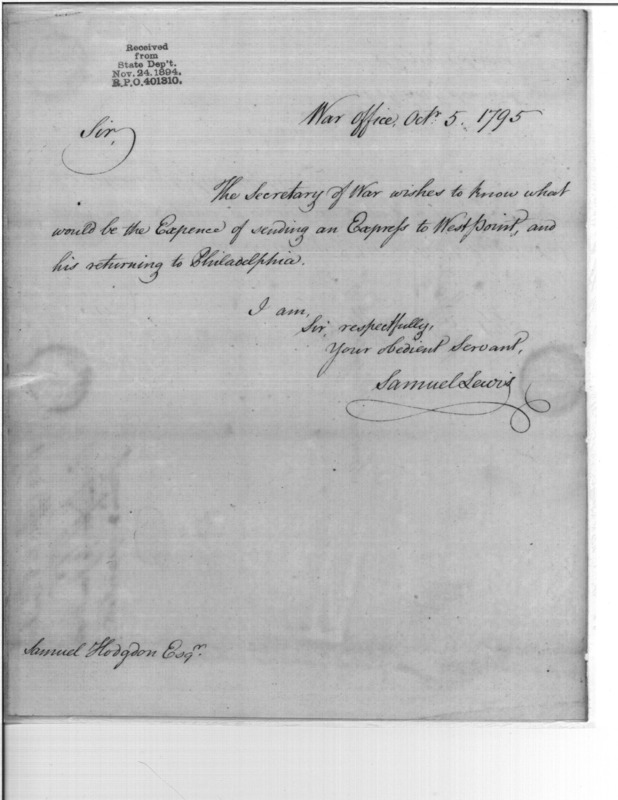 Received
from
State Dep't.
Nov. 24. 1894.
R.P.O. 401310.
War office, Octr. 5. 1795
Sir,
The Secretary of War wishes to know what
would be the Expence of sending an Express to West Point, and
his returning to Philadelphia.
I am,
Sir, respectfully,
Your obedient Servant,
Samuel Lewis
Samuel Hodgdon Esqr.